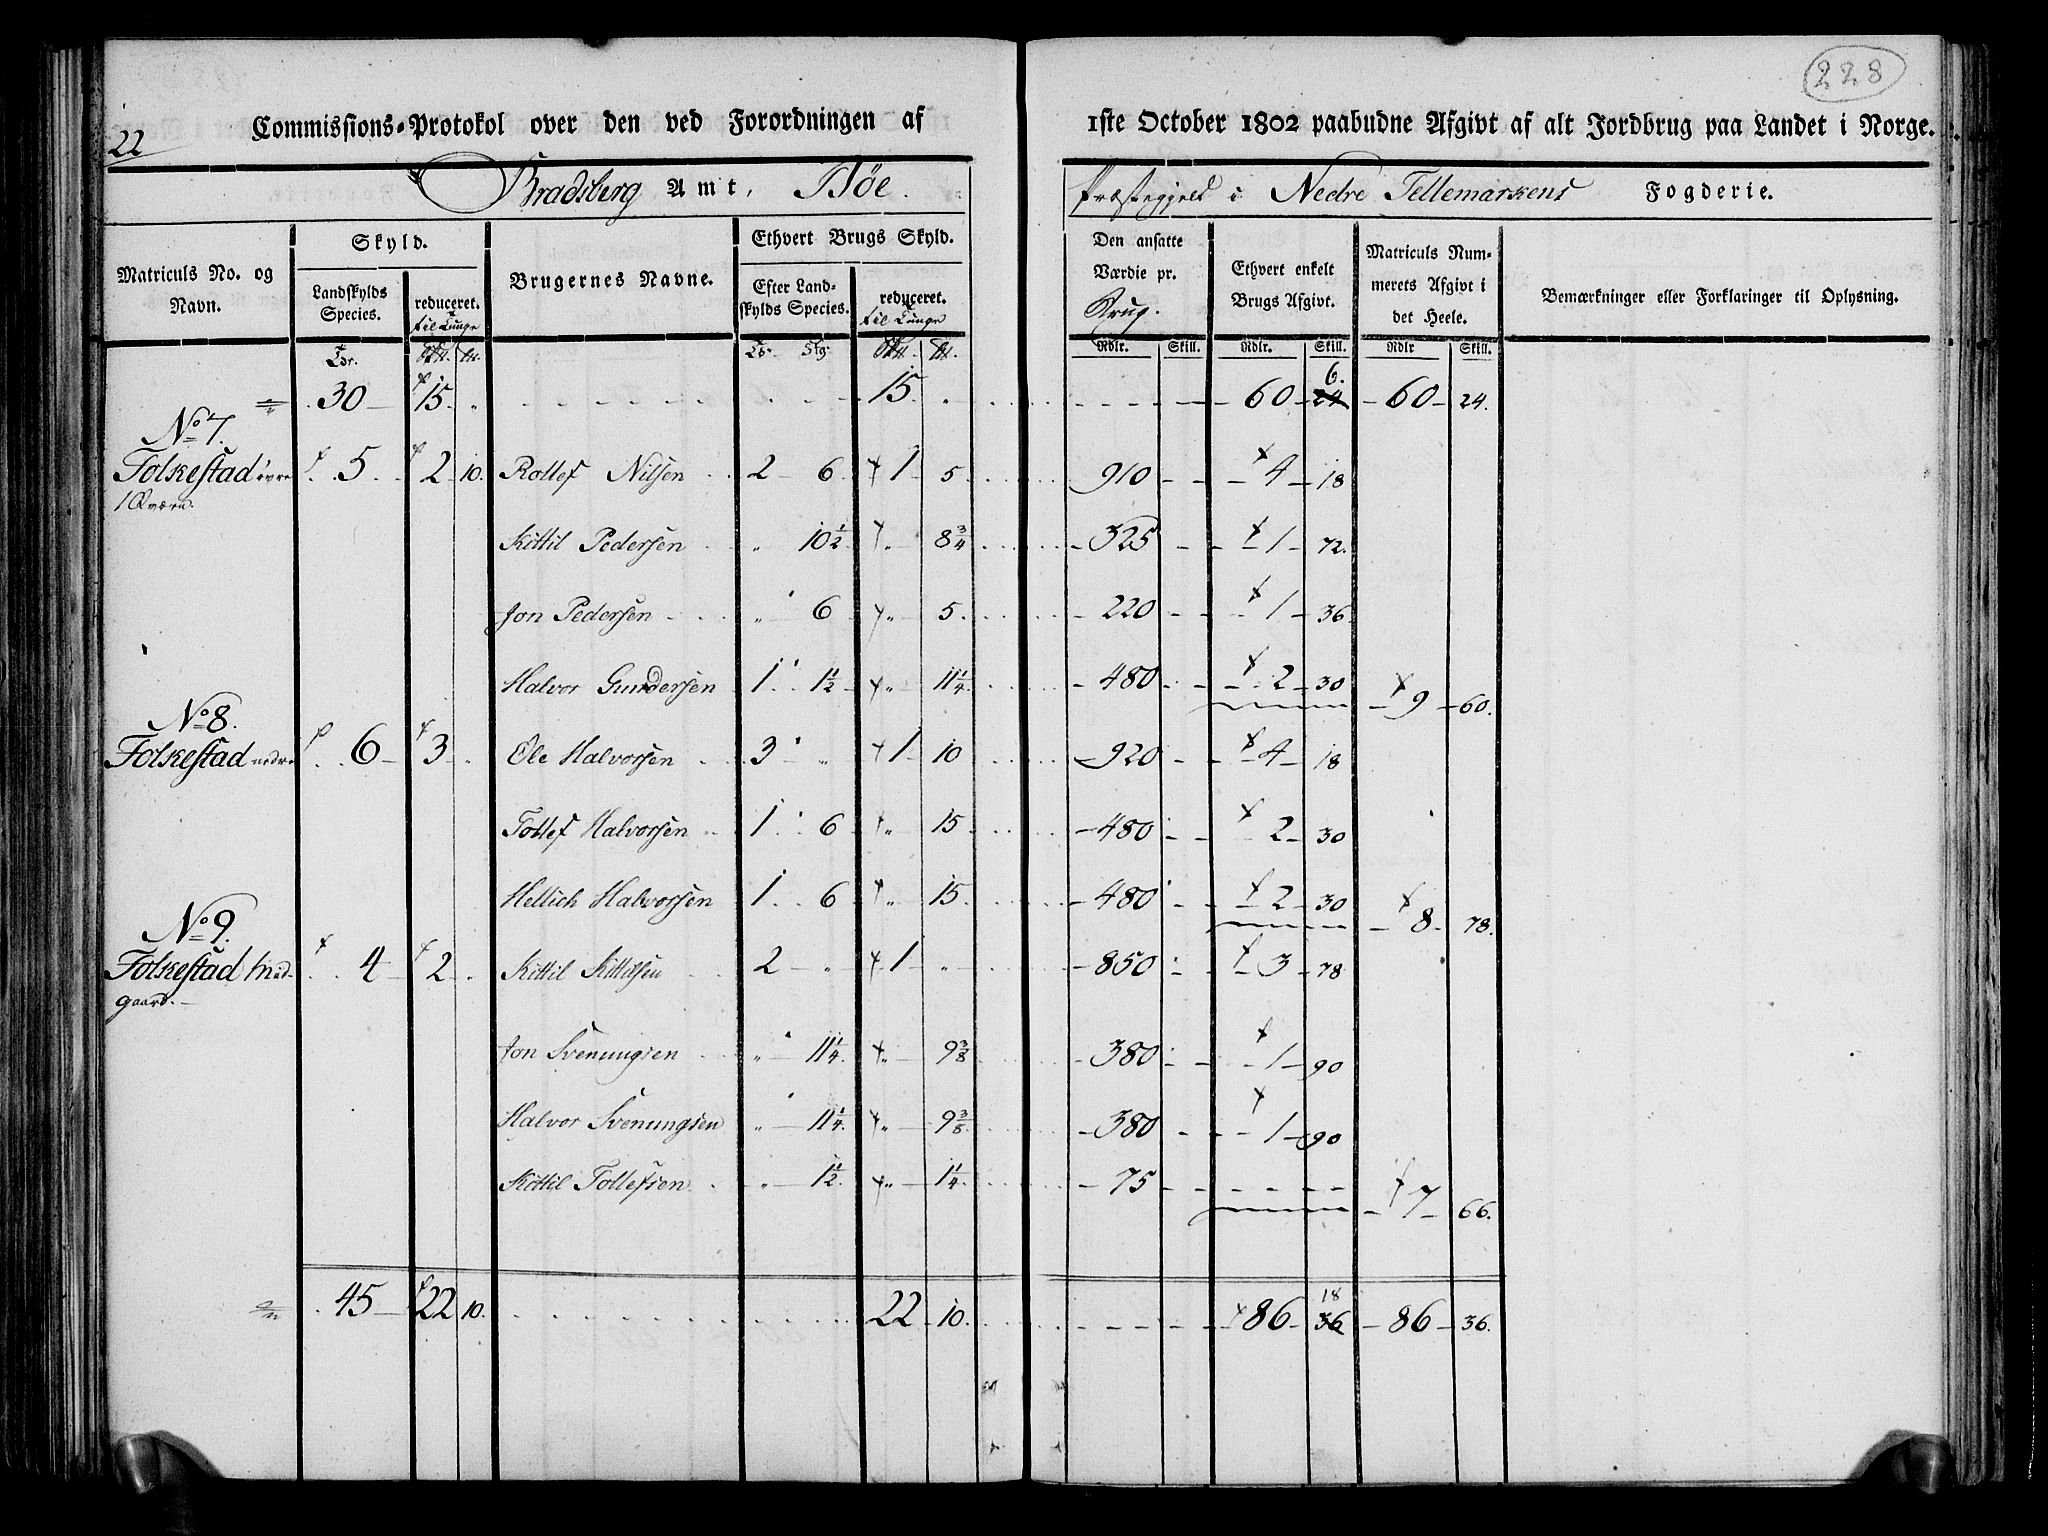 228
22
Commissions-Protokol over den ved Forordningen af 1ste October 1802 paabudne Afgivt af alt Jordbrug paa Landet i Norge.
Bradsberg Amt, Bøe. Præstegjeld i Nedre Tellemarkens Fogderie.
Matriculs No. og Navn. Skyld. Landskylds Species. reduceret. til Tunge Brugernes Navne. Ethvert Brugs Skyld. Efter Landskylds Species. reduceret. til Tunge Den ansatte Værdie pr. Brug. Ethvert enkelt Brugs Afgivt. Matriculs Nummerets Afgivt i det Heele. Bemærkninger eller Forklaringer til Oplysning.
Rdlr. Skill. Rdlr. Skill. Rdlr Skill.
30 15 " 15 " 60 6. 24 60 24.
No 7.
Folkestad øvre 5 2 10. Rollef Nilsen 2 6 1 5 910 4 18
1 Qværn.
Kittil Pedersen " 10 1/2 " 8 3/4 325 1 72.
Jon Pedersen " 6 " 5. 220 1 36
Halvor Gundersen 1 1 1/2 " 11 1/4 480 2 30 9 60.
No 8.
Folkestad nedre 6 3 " Ole Halvorsen 3 " 1 10 920 4 18
Tollef Halvorsen 1 6 " 15 480 2 30
Hellich Halvorsen 1 6 " 15 480 2 30 8 78.
No 9.
Folkestad Midgaard. 4 2 " Kittil Kittilsen 2 " 1 " 850 3 78
Jon Svenungsen " 11 1/4 " 9 3/8 380 1 90
Halvor Svenungsen " 11 1/4 " 9 3/8 380 1 90
Kittil Tollefsen " 1 1/2 " 1 1/4 75 7 66.
45 22 10. 22 10. 86 18 36 86 36.